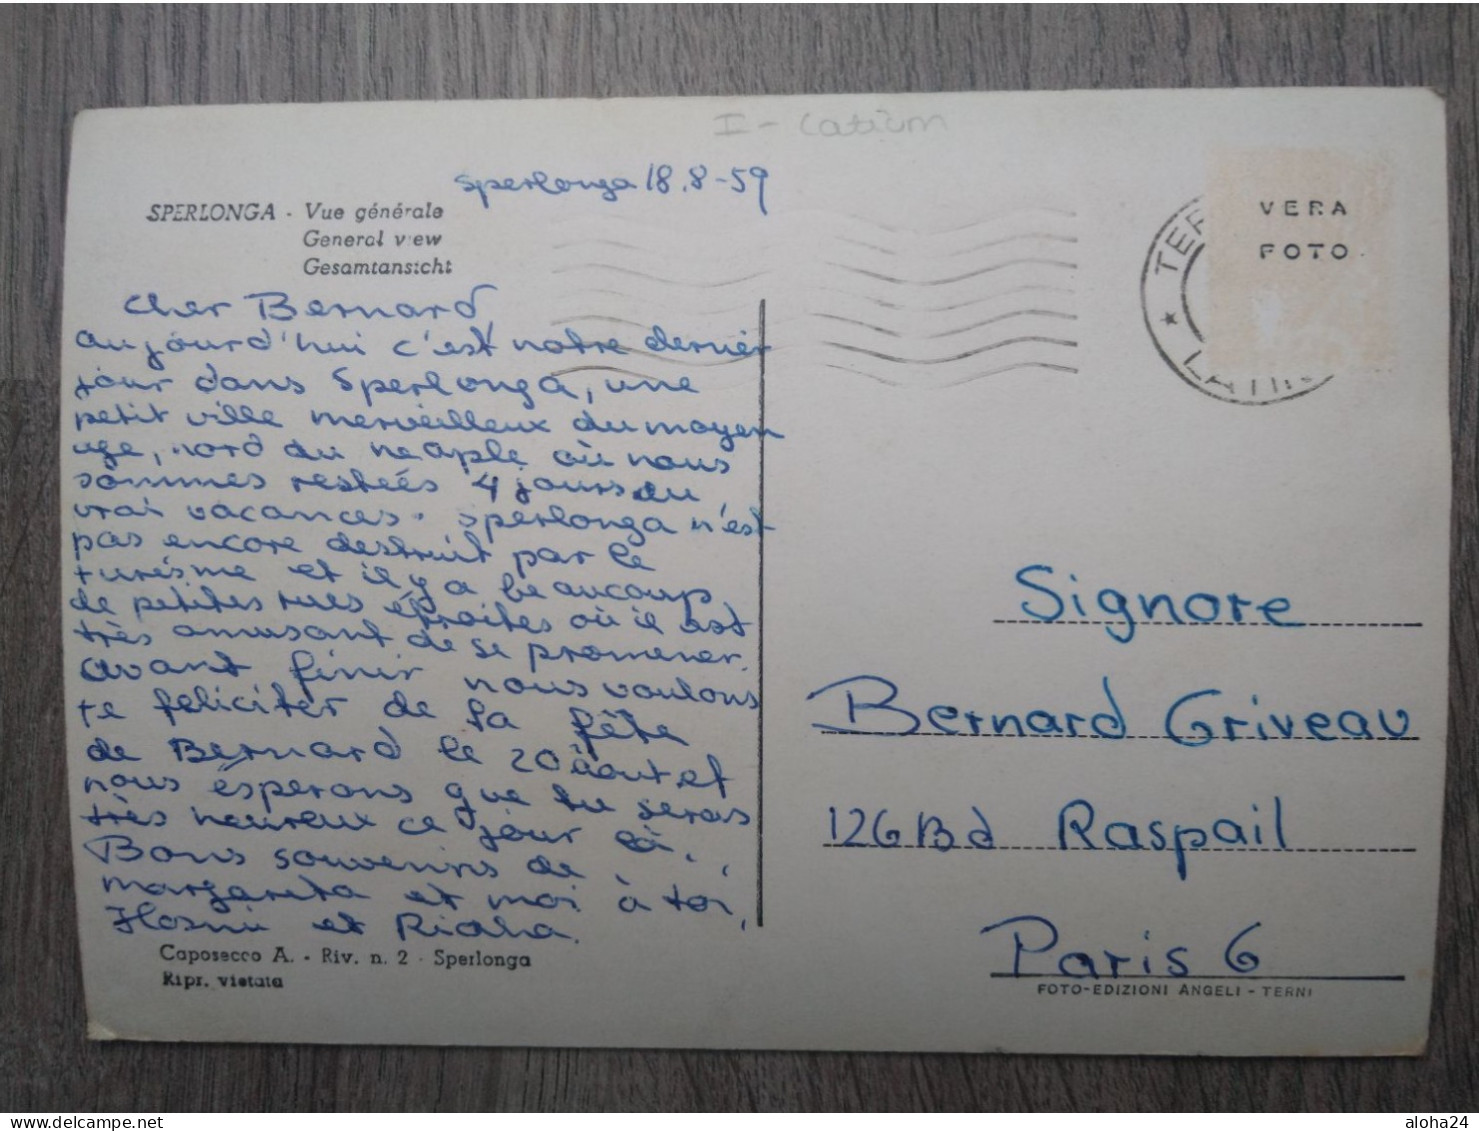 I - Latium
Sperlonga 18.8-59
SPERLONGA - Vue générale
General view
Gesamtansicht
VERA
FOTO
TER
LATINA
Cher Bernard,
aujourd'hui c'est notre dernier
jour dans Sperlonga, une
petit ville merveilleux du moyen
age, nord du neaple où nous
sommes restés 4 jours du
vrai vacances. Sperlonga n'est
pas encore destruit par le
turisme et il y a beaucoup
de petites rues étroites où il est
très amusant de se promener.
avant finir nous voulons
te feliciter de la fête
de Bernard le 20 août et
nous ésperons que tu seras
très heureux ce jour là.
Bons souvenirs de
margareta et moi à toi,
et
Caposecco A. - Riv. n. 2 - Sperlonga
Ripr. vietata
Signore
Bernard Griveau
126 Bd Raspail
Paris 6
FOTO-EDIZIONI ANGELI - TERNI
aloha24